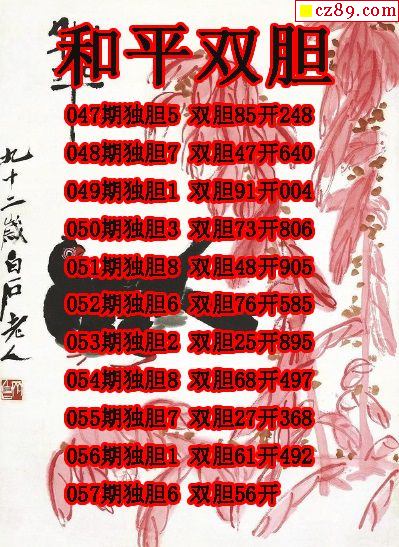 cz89.com
和平双胆
047期独胆5 双胆85开248
048期独胆7 双胆47开640
049期独胆1 双胆91开004
050期独胆3 双胆73开806
051期独胆8 双胆48开905
052期独胆6 双胆76开585
053期独胆2 双胆25开895
054期独胆8 双胆68开497
055期独胆7 双胆27开368
056期独胆1 双胆61开492
057期独胆6 双胆56开
九十二岁白石老人